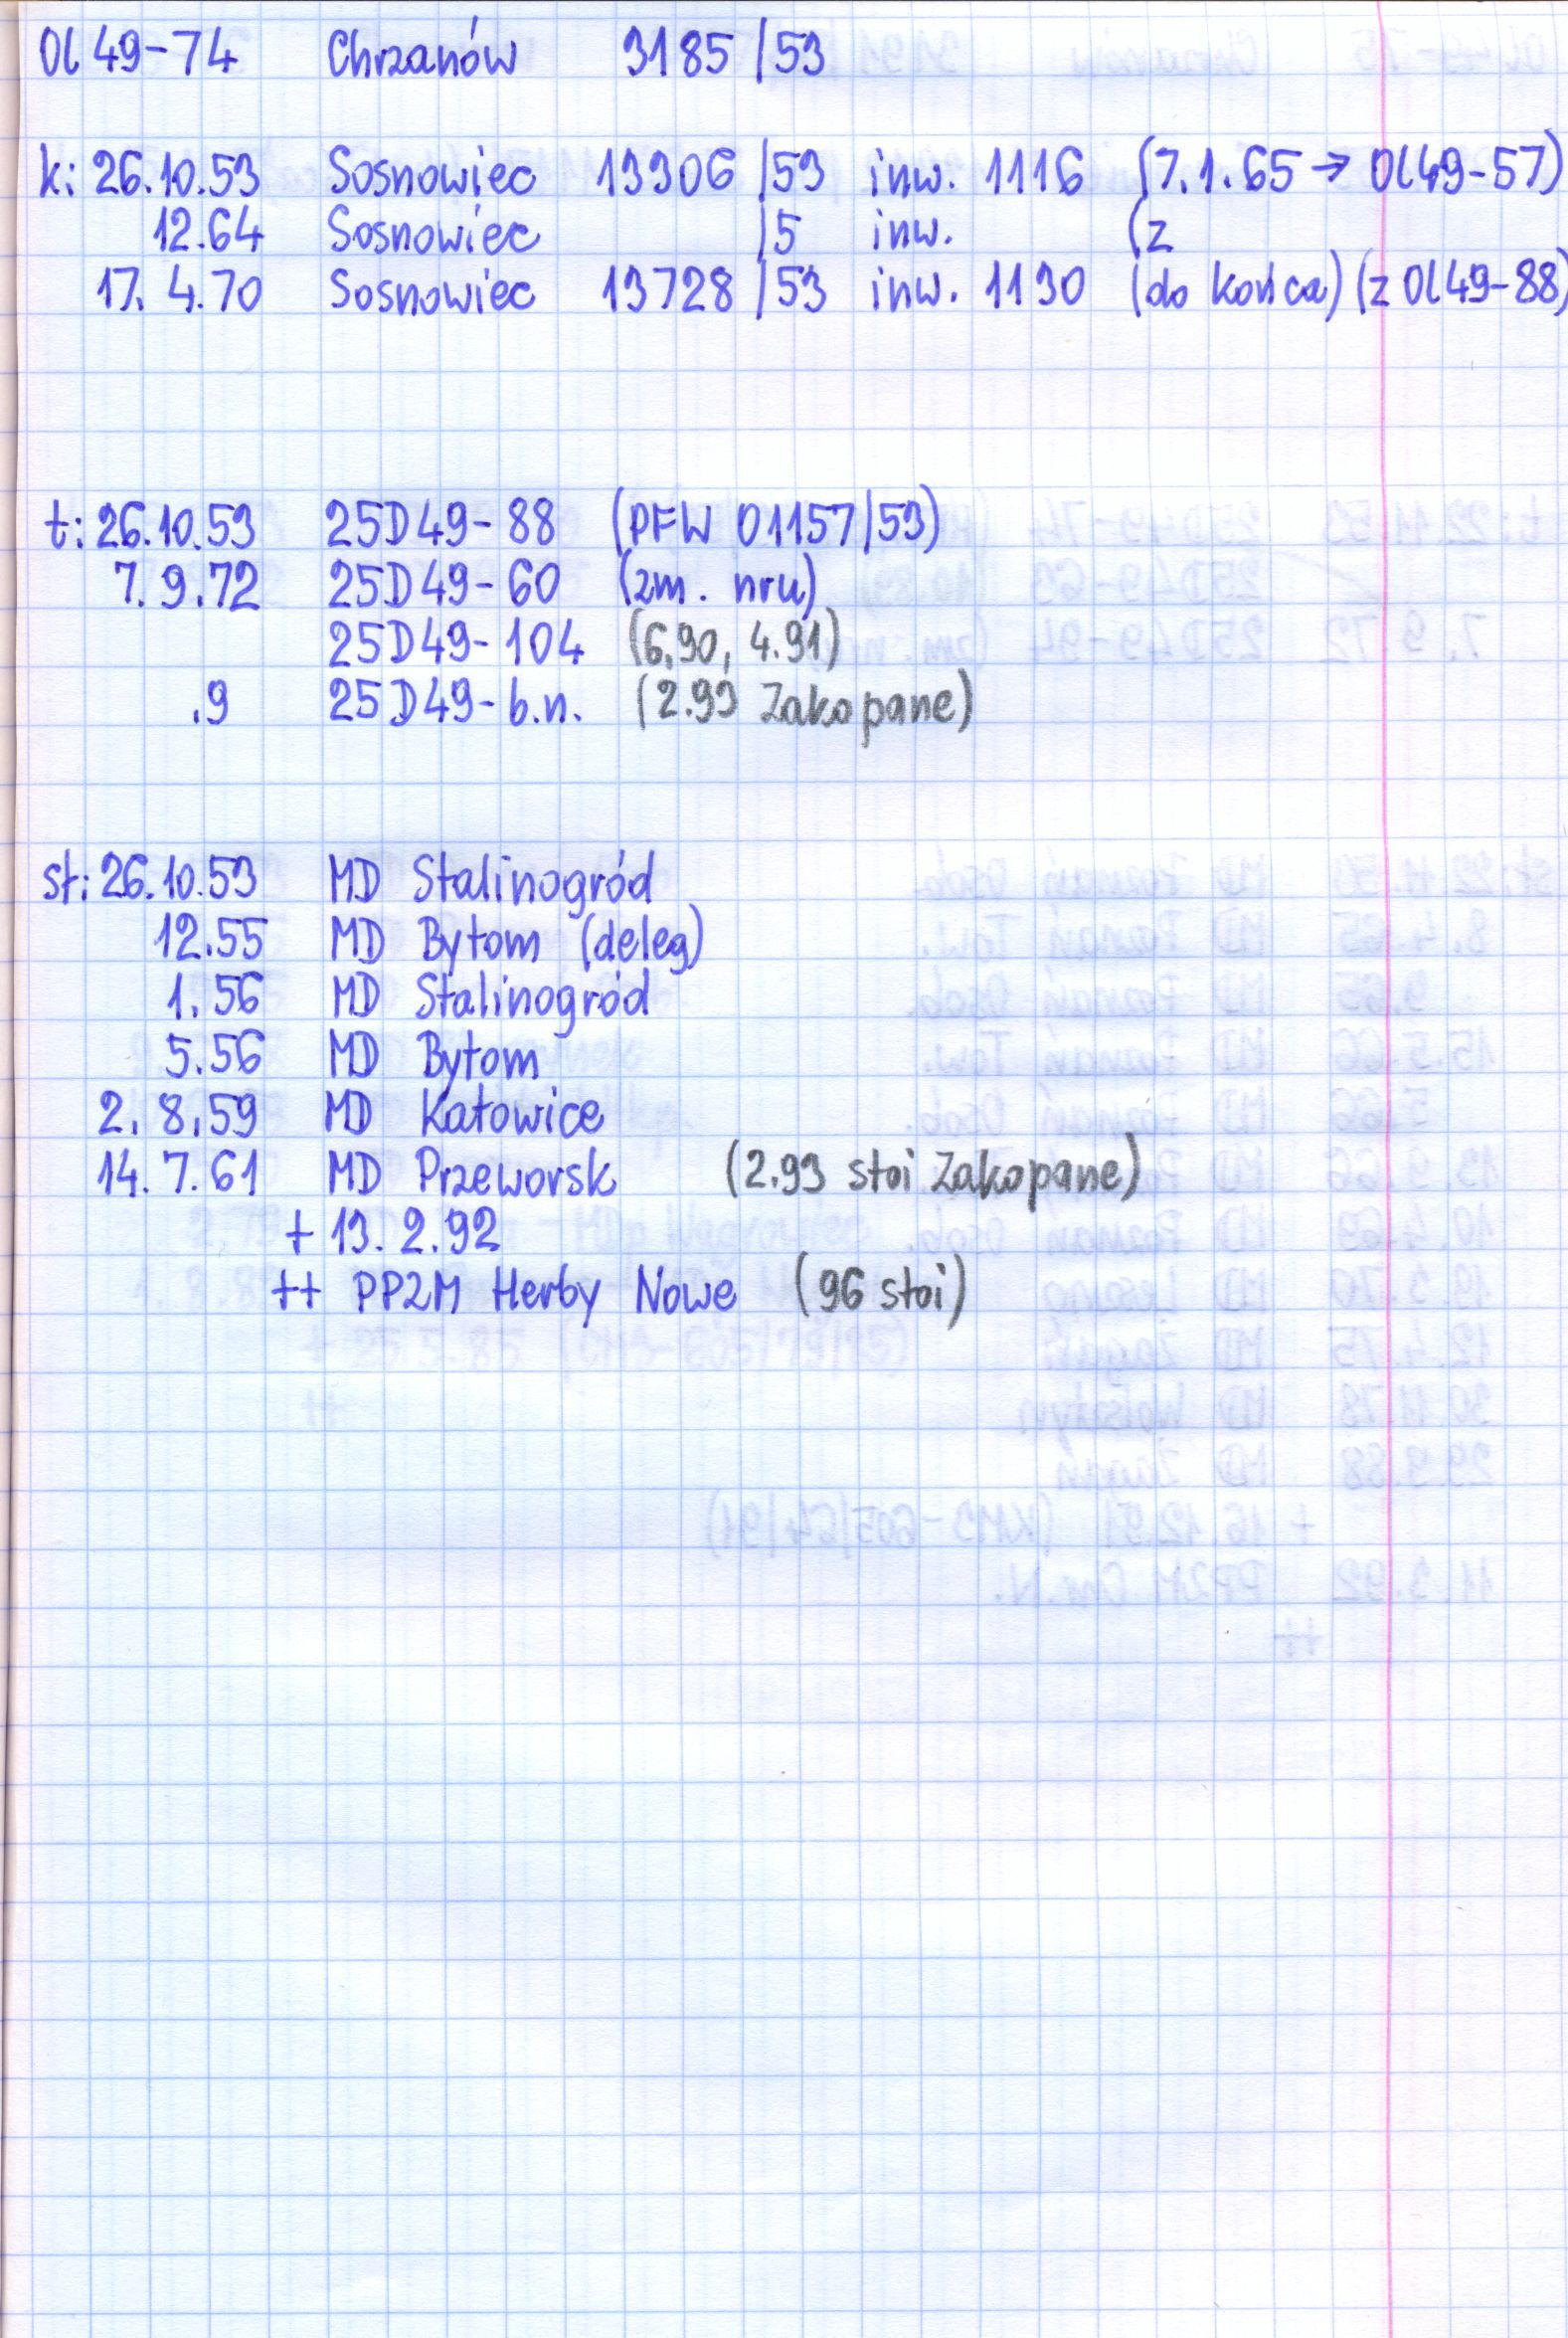 Ol 49-74 Chrzanów 3185/53
k: 26.10.53 Sosnowiec 13306/53 inw. 1116 (7.1.65 → Ol49-57)
12.64 Sosnowiec /5 inw. (z
17. 4.70 Sosnowiec 13728/53 inw. 1130 (do końca) (z Ol49-88)
t: 26.10.53 25D49-88 (PFW 01157/53)
7. 9.72 25D49-60 (zm. nru)
25D49-104 (6.90, 4.91)
.9 25D49-b.n. (2.93 Zakopane)
st: 26.10.53 MD Stalinogród
12.55 MD Bytom (deleg)
1.56 MD Stalinogród
5.56 MD Bytom
2. 8.59 MD Katowice
14. 7.61 MD Przeworsk (2.93 stoi Zakopane)
+ 13. 2.92
++ PPZM Herby Nowe (96 stoi)